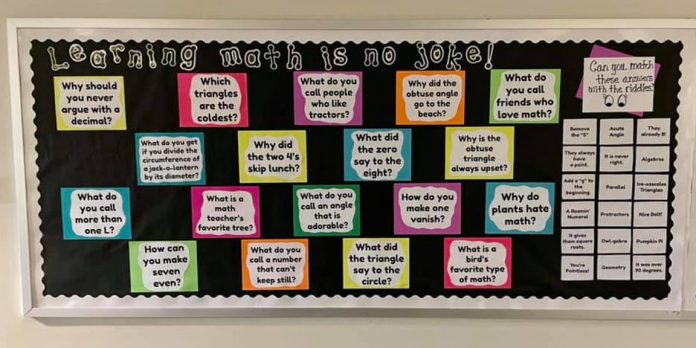 Learning math is no joke!
Why should
you never
argue with a
decimal?
Which
triangles
are the
coldest?
What do you
call people
who like
tractors?
Why did the
obtuse angle
go to the
beach?
What do
you call
friends who
love math?
What do you get
if you divide the
circumference of
a jack-o-lantern
by its diameter?
Why did
the two 4's
skip lunch?
What did
the zero
say to the
eight?
Why is the
obtuse
triangle
always upset?
What do
you call
more than
one L?
What is a
math
teacher's
favorite tree?
What do you
call an angle
that is
adorable?
How do you
make one
vanish?
Why do
plants hate
math?
How can
you make
seven
even?
What do you
call a number
that can't
keep still?
What did
the triangle
say to the
circle?
What is a
bird's
favorite type
of math?
Can you match
these answers
with the riddles?
Remove
the "S"
Acute
Angle
They
already 8!
They always
have a point.
It is never
right.
Algebros
Add a "g" to
the
beginning.
Parallel
Ice-sosceles
Triangles
A Roamin'
Numeral
Protractors
Nice Belt!
It gives
them square
roots.
Owl-gebra
Pumpkin Pi
You're
Pointless!
Geometry
It was over
90 degrees.